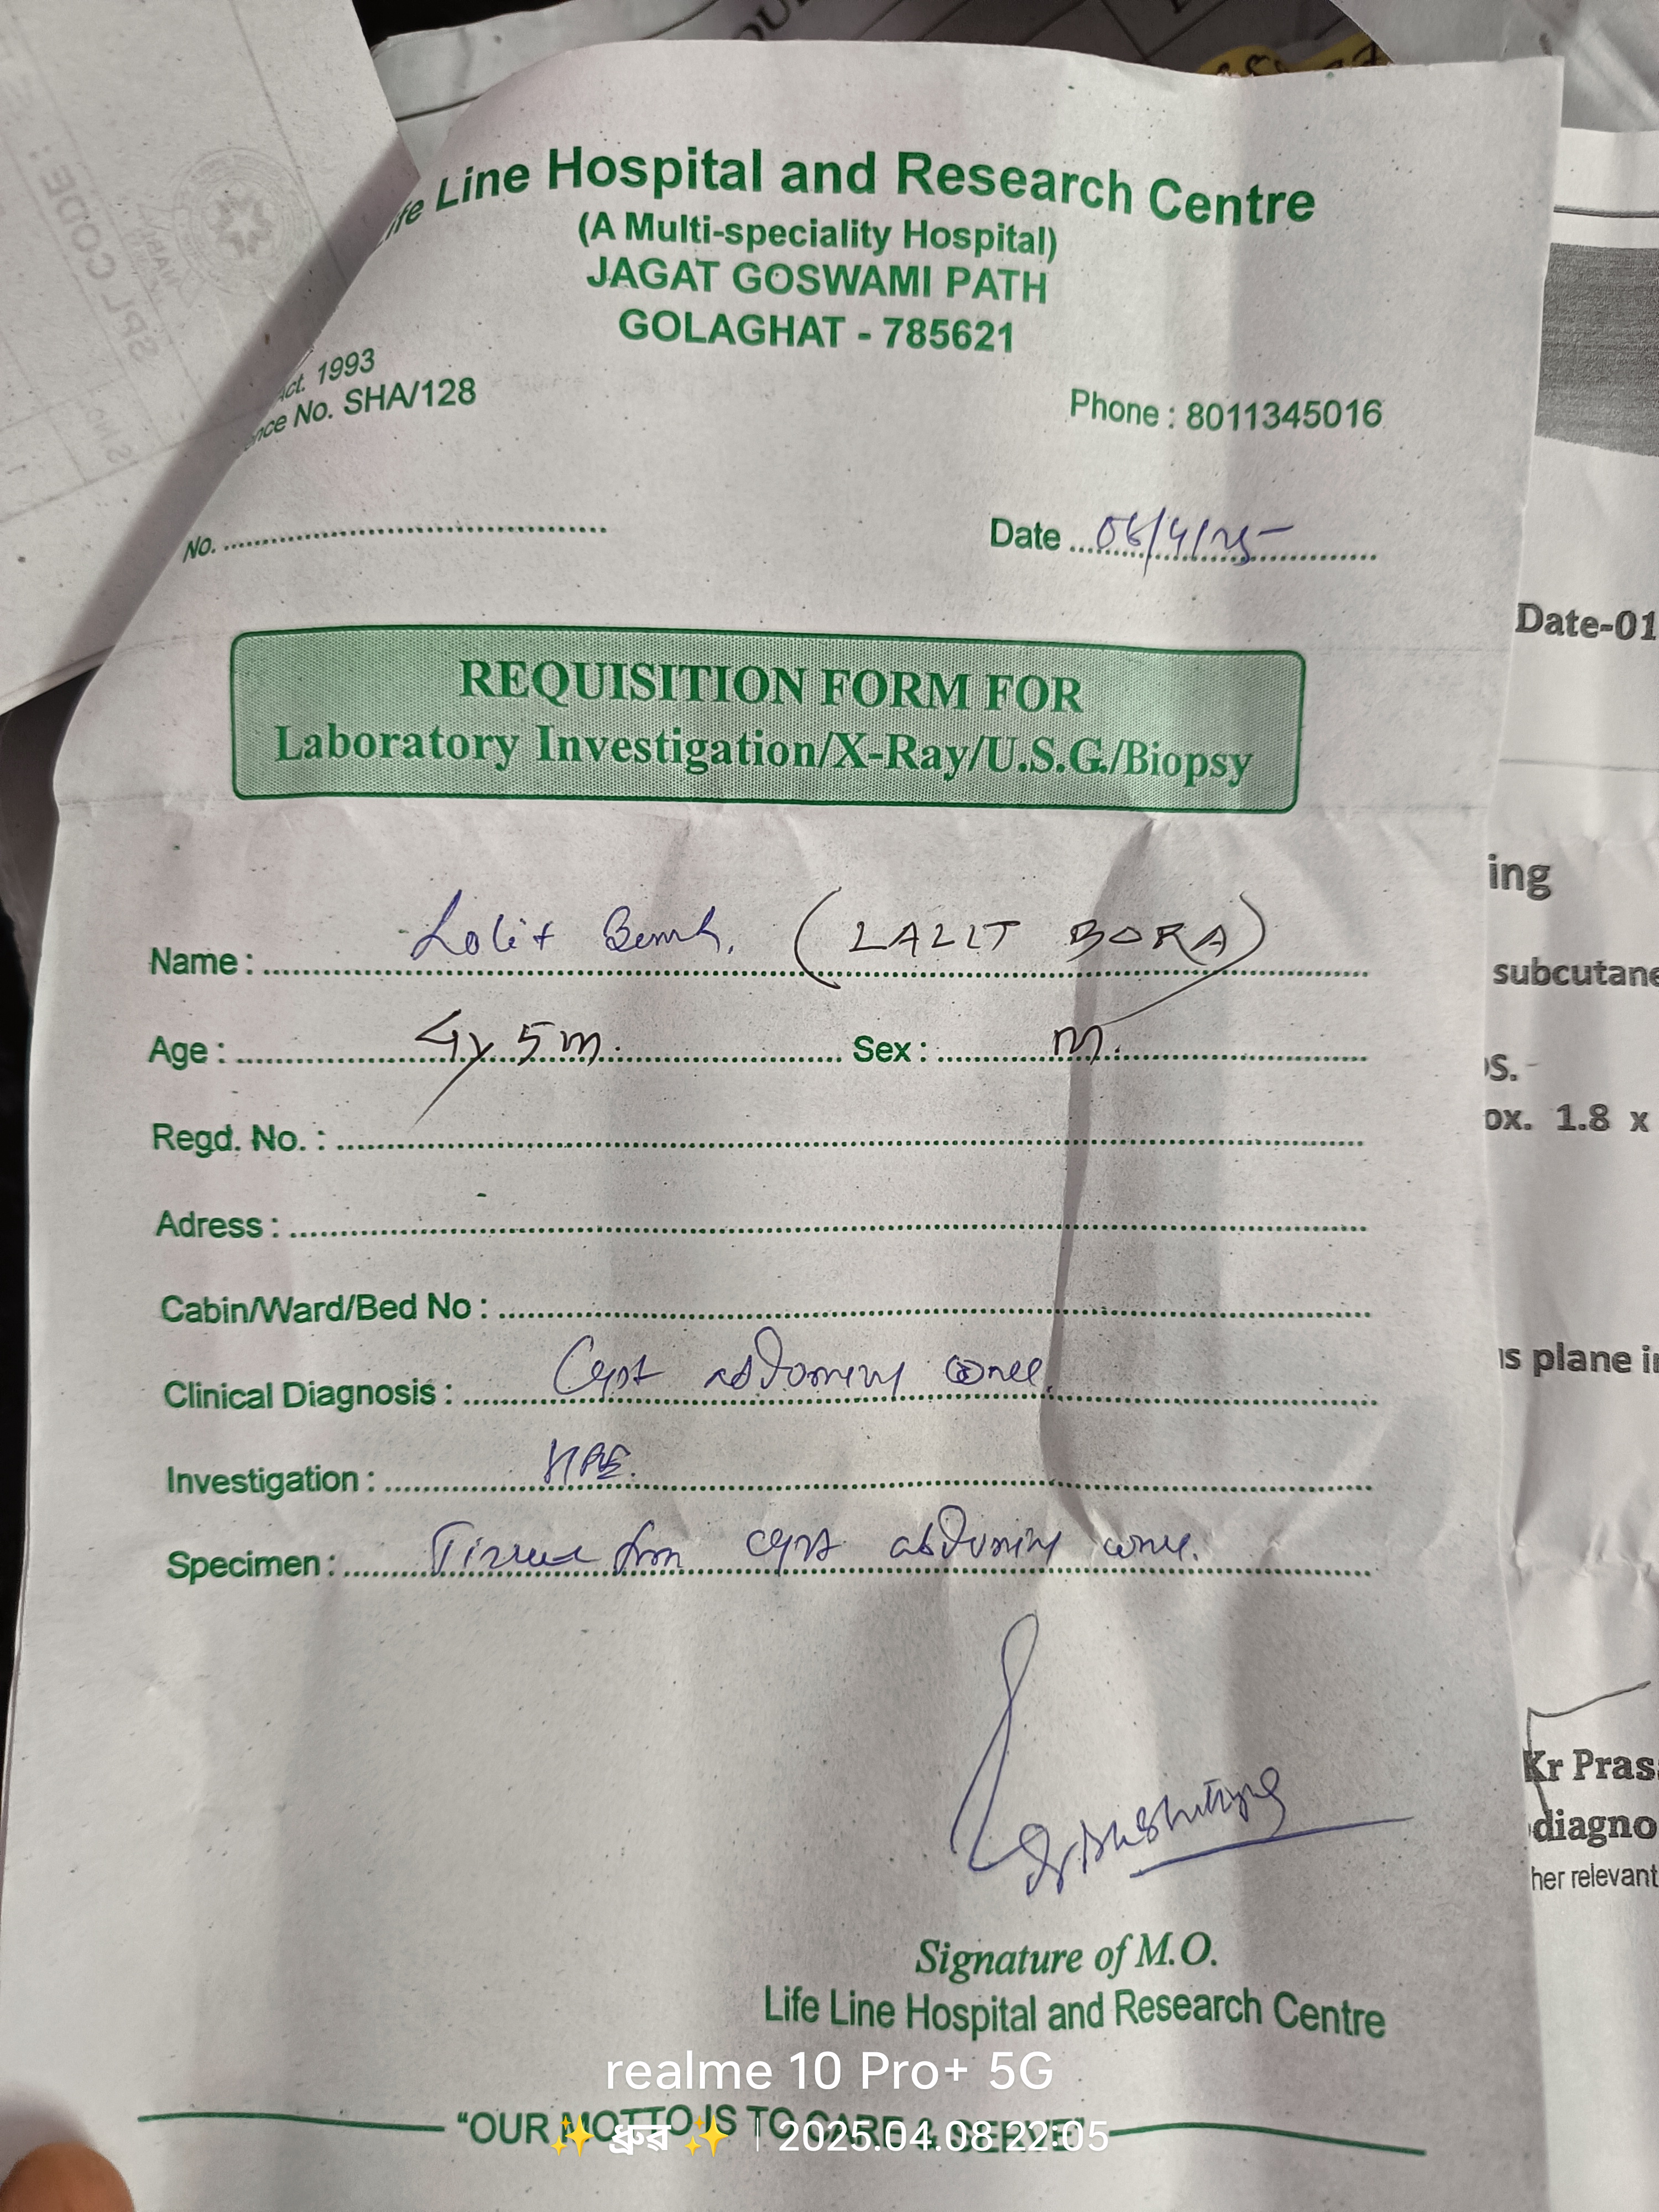 Line Hospital and Research Centre
(A Multi-speciality Hospital)
JAGAT GOSWAMI PATH
GOLAGHAT - 785621
Act. 1993
nce No. SHA/128
Phone : 8011345016
No.
Date 06/4/25
REQUISITION FORM FOR
Laboratory Investigation/X-Ray/U.S.G./Biopsy
Name : Lolit (LALIT BORA)
Age : 4y 5m. Sex : m.
Regd. No. :
Adress :
Cabin/Ward/Bed No :
Clinical Diagnosis : Cyst
Investigation : HPE.
Specimen : Tissue from cyst
Signature of M.O.
Life Line Hospital and Research Centre
"OUR MOTTO IS TO CARE & SERVE"
realme 10 Pro+ 5G
✨ ধ্ৰুৱ ✨ | 2025.04.08 22:05
SPL CODE:
Date-01
ing
subcutane
os.
ox. 1.8 x
us plane in
Kr Pras
diagno
her relevant